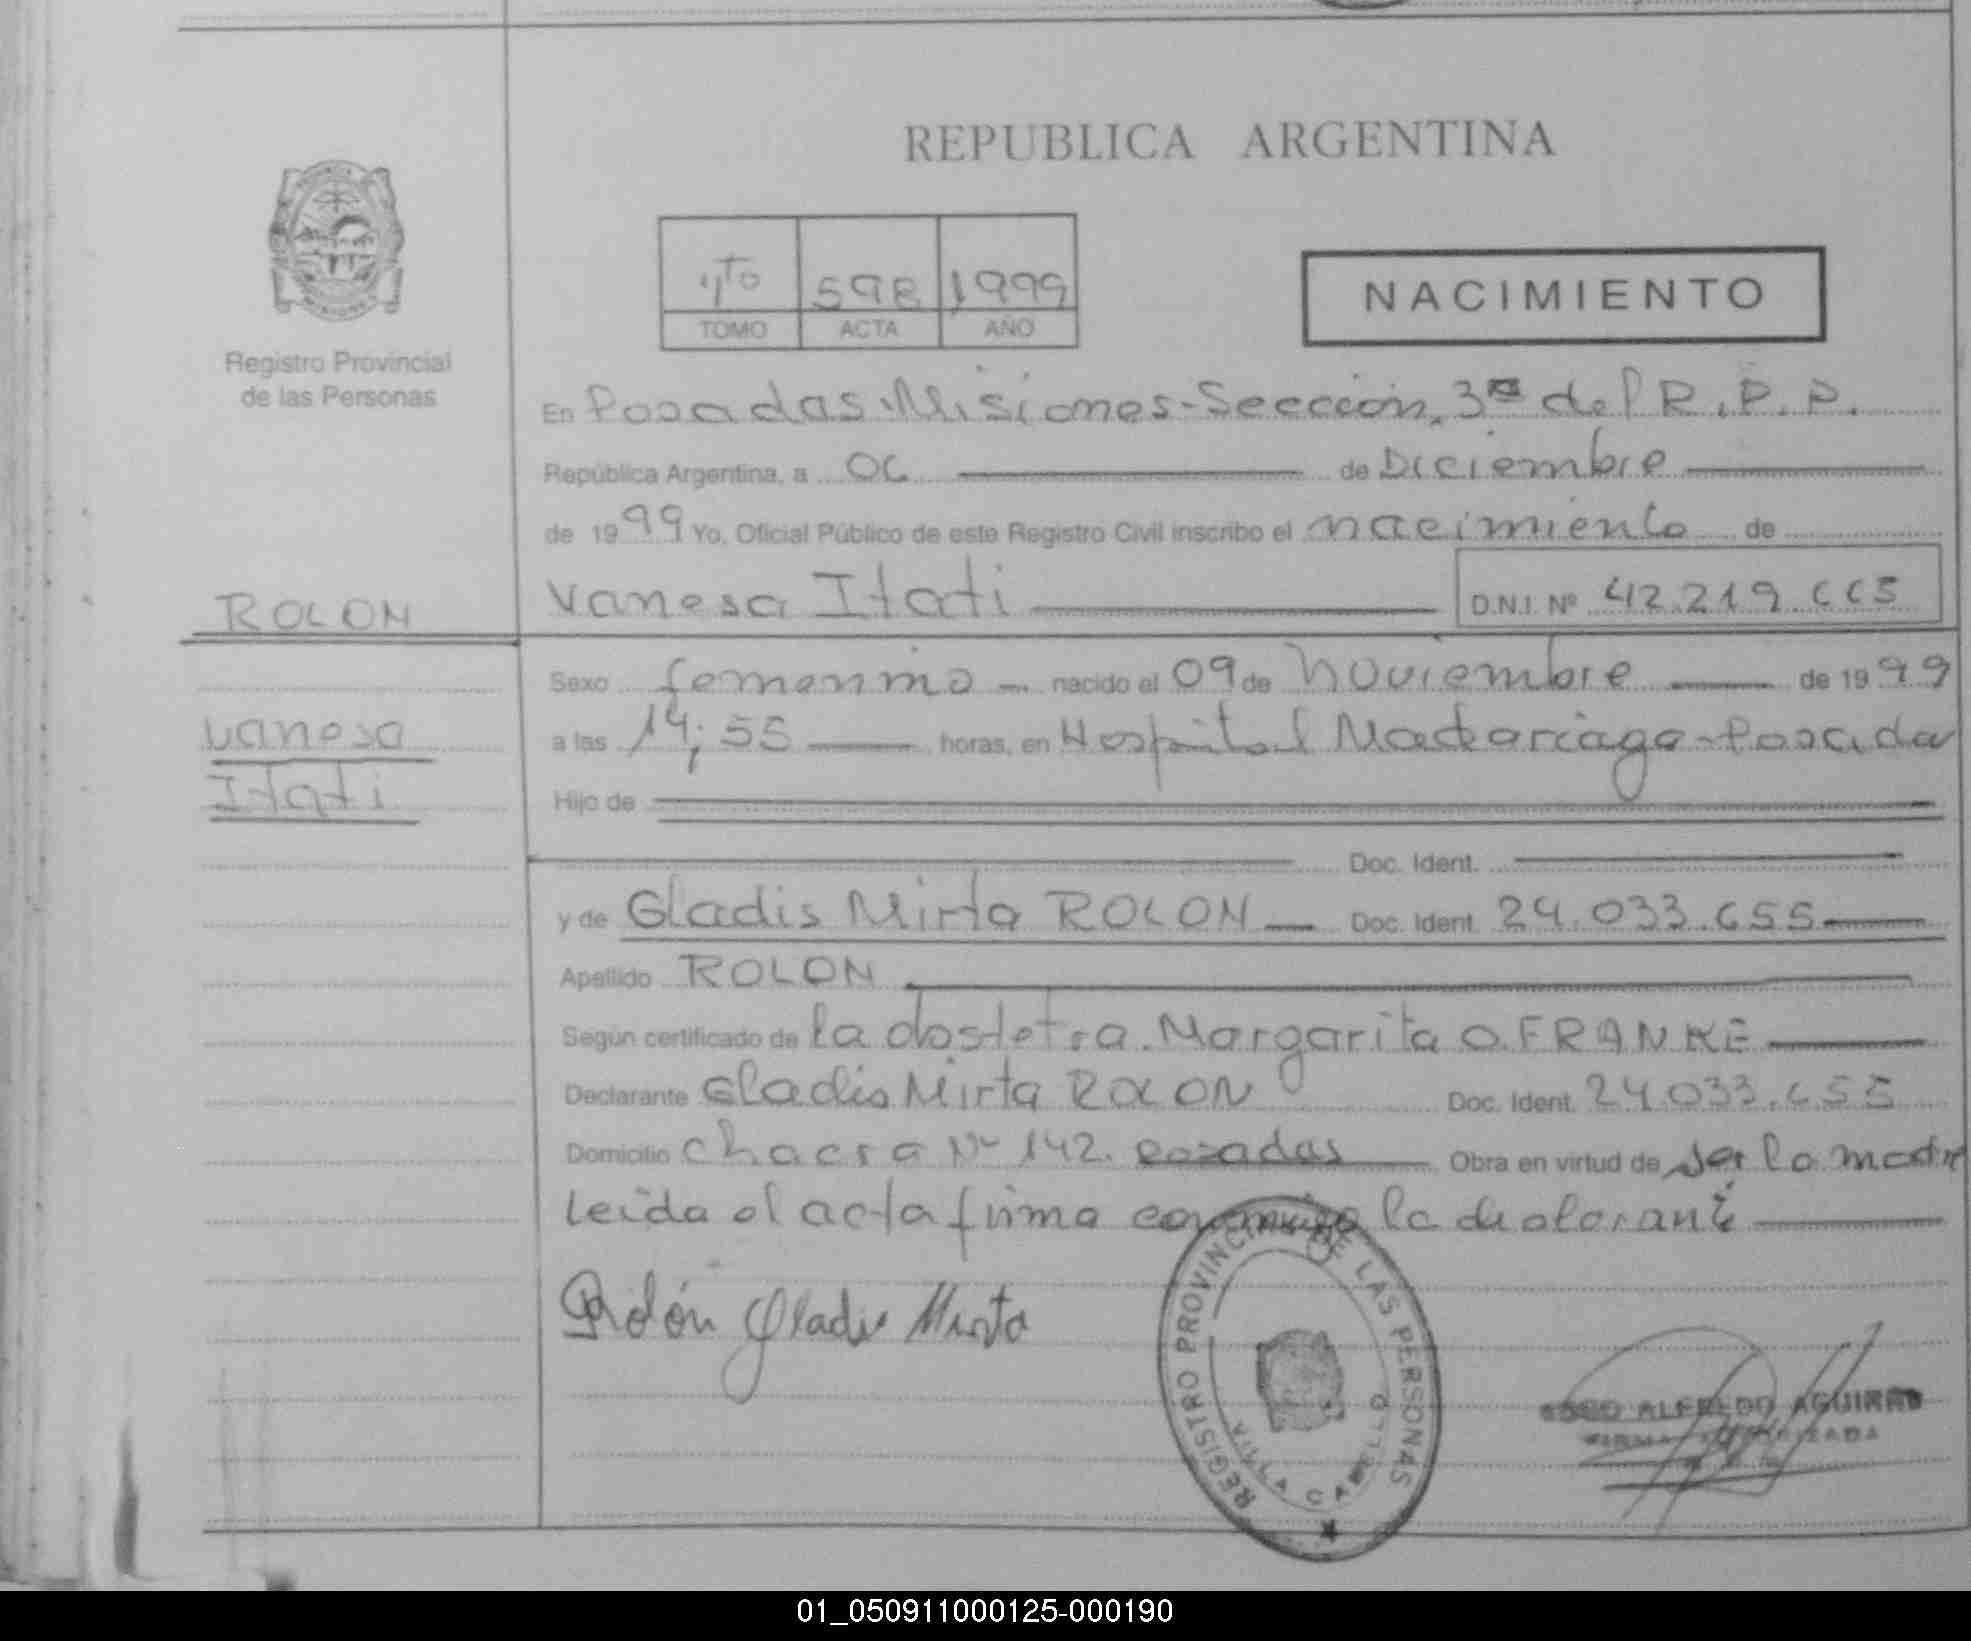 REPUBLICA ARGENTINA
4to 598 1999
TOMO ACTA AÑO
NACIMIENTO
Registro Provincial
de las Personas
En Posadas Misiones-Sección 3ra del R.P.P.
República Argentina, a 06 de Diciembre
de 1999 Yo, Oficial Público de este Registro Civil inscribo el nacimiento de
ROLON
Vanesa Itati D.N.I. Nº 42.219.665
Sexo femenino nacido el 09 de Noviembre de 1999
Vanesa
a las 14;55 horas, en Hospital Madariaga-Posadas
Itati
Hijo de
Doc. Ident.
y de Gladis Mirta ROLON Doc. Ident. 24.033.655
Apellido ROLON
Según certificado de la obstetra Margarita O. FRANKE
Declarante Gladis Mirta ROLON Doc. Ident. 24.033.655
Domicilio Chacra Nº 142. Posadas Obra en virtud de ser la madre
leida el acta firma conmigo la declarante
Rolón Gladis Mirta
REGISTRO PROVINCIAL DE LAS PERSONAS
VILLA CABELLO
ALFREDO AGUIRRE
FIRMA AUTORIZADA
01_050911000125-000190